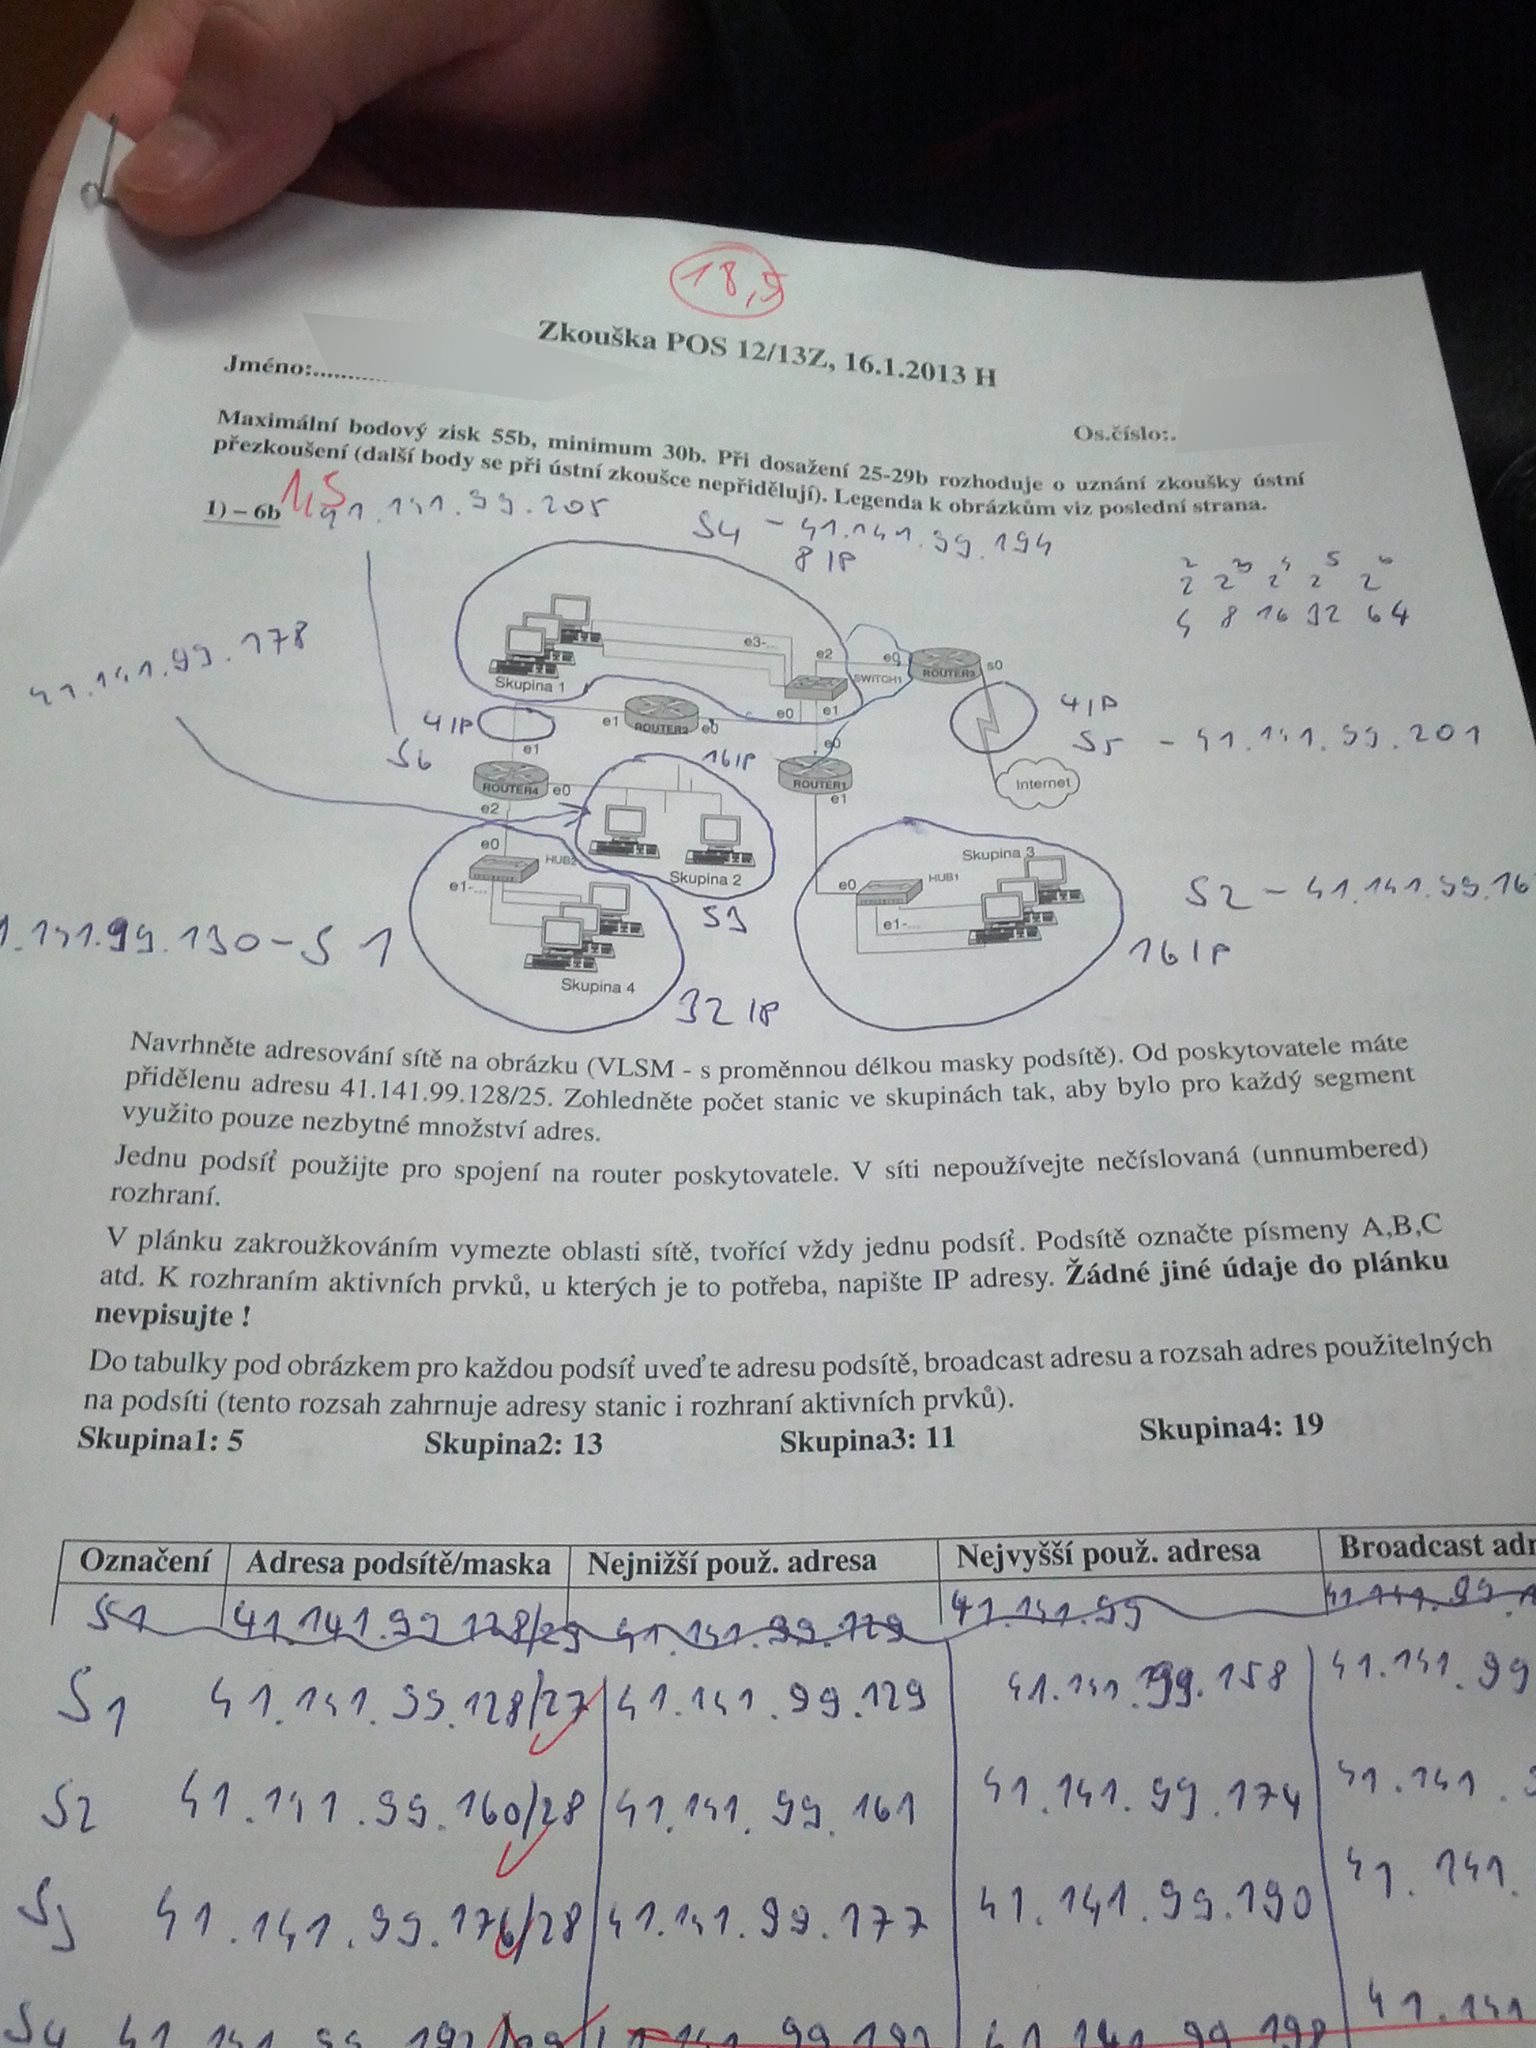 18,5
Zkouška POS 12/13Z, 16.1.2013 H
Jméno:............
Os.číslo:.
Maximální bodový zisk 55b, minimum 30b. Při dosažení 25-29b rozhoduje o uznání zkoušky ústní
přezkoušení (další body se při ústní zkoušce nepřidělují). Legenda k obrázkům viz poslední strana.
1) – 6b
1,5
41.141.99.205
S4 - 41.141.99.194
8 IP
2² 2³ 2⁴ 2⁵ 2⁶
4 8 16 32 64
41.141.99.178
Skupina 1
e3-...
e2
e0
SWITCH1
ROUTER3
s0
4 IP
S5 - 41.141.99.201
Internet
4 IP
e1
ROUTER2
e0
e0
e1
e1
S6
ROUTER4
e0
e2
16 IP
e0
ROUTER1
e1
Skupina 2
S3
e0
HUB2
e1-...
Skupina 4
32 IP
.141.99.130 - S1
e0
HUB1
e1-...
Skupina 3
16 IP
S2 - 41.141.99.16
Navrhněte adresování sítě na obrázku (VLSM - s proměnnou délkou masky podsítě). Od poskytovatele máte
přidělenu adresu 41.141.99.128/25. Zohledněte počet stanic ve skupinách tak, aby bylo pro každý segment
využito pouze nezbytné množství adres.
Jednu podsíť použijte pro spojení na router poskytovatele. V síti nepoužívejte nečíslovaná (unnumbered)
rozhraní.
V plánku zakroužkováním vymezte oblasti sítě, tvořící vždy jednu podsíť. Podsítě označte písmeny A,B,C
atd. K rozhraním aktivních prvků, u kterých je to potřeba, napište IP adresy. Žádné jiné údaje do plánku
nevpisujte !
Do tabulky pod obrázkem pro každou podsíť uveďte adresu podsítě, broadcast adresu a rozsah adres použitelných
na podsíti (tento rozsah zahrnuje adresy stanic i rozhraní aktivních prvků).
Skupina1: 5 Skupina2: 13 Skupina3: 11 Skupina4: 19
Označení Adresa podsítě/maska Nejnižší použ. adresa Nejvyšší použ. adresa Broadcast adr
S1 41.141.99.128/29 41.141.99.129 41.141.99 41.141.99.1
S1 41.141.99.128/27 41.141.99.129 41.141.99.158 41.141.99
S2 41.141.99.160/28 41.141.99.161 41.141.99.174 41.141.
S3 41.141.99.176/28 41.141.99.177 41.141.99.190 41.141.
S4 41.141.99.192 41.141.99.193 41.141.99.198 41.141